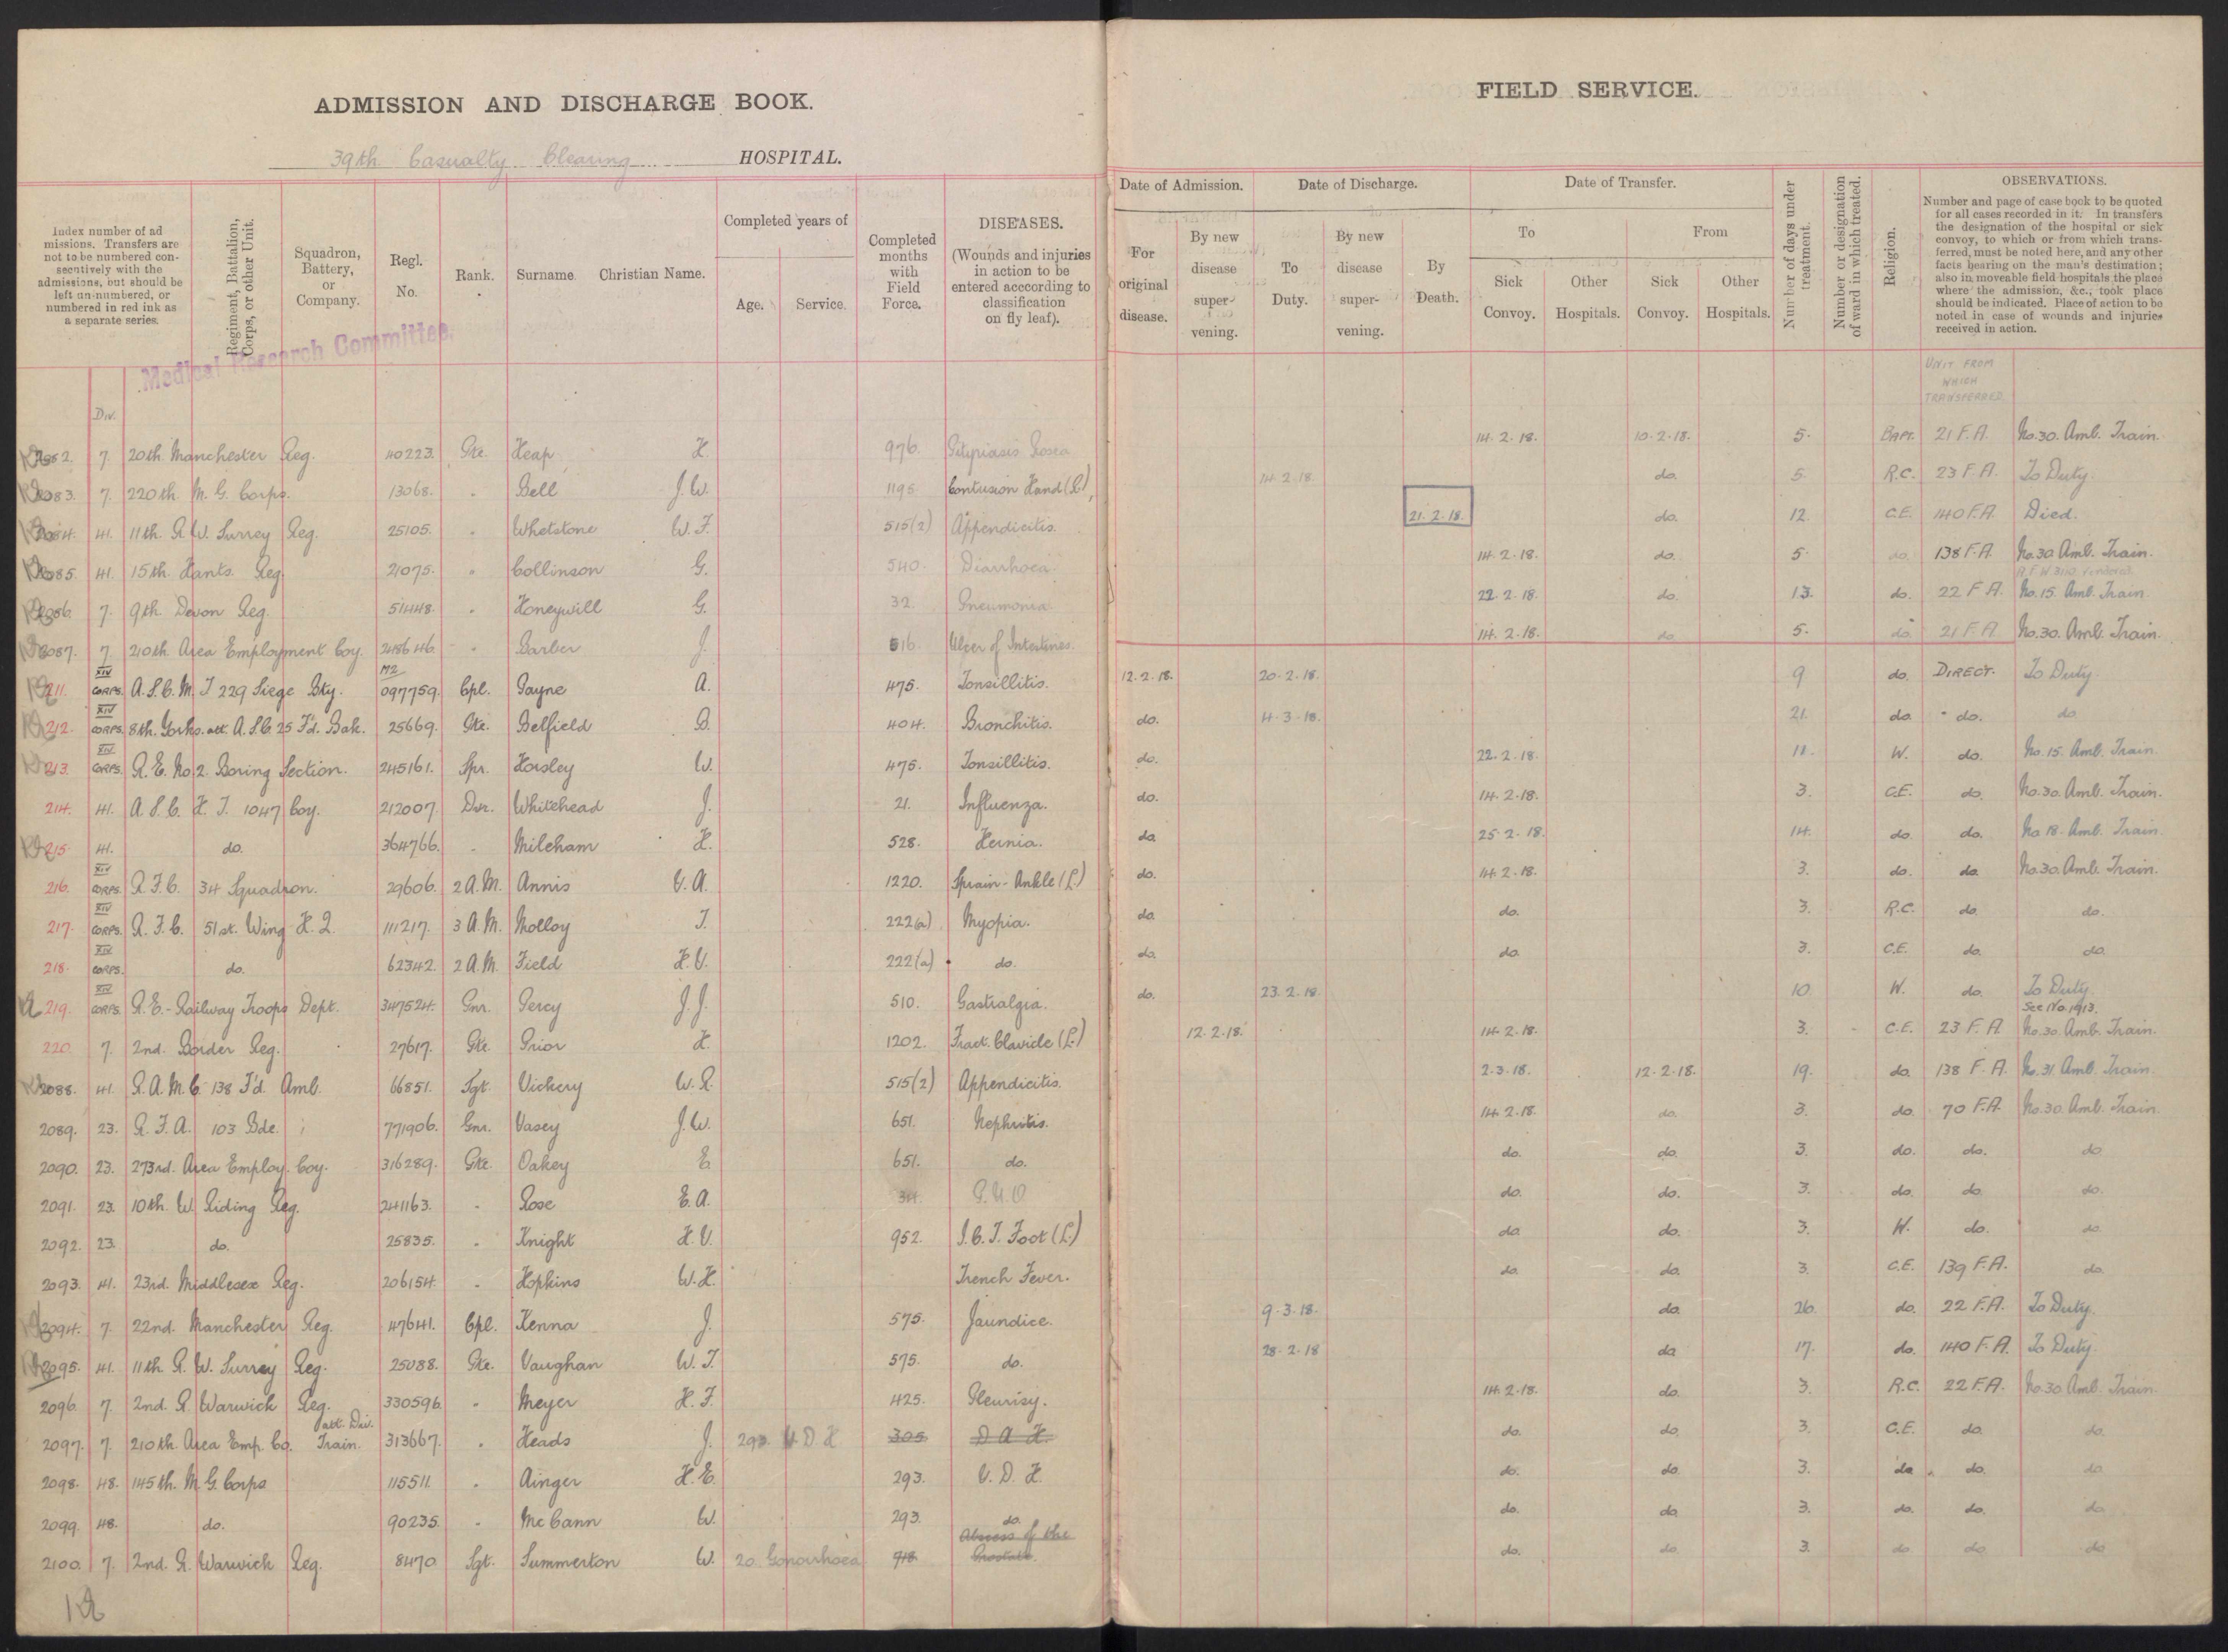 ADMISSION AND DISCHARGE BOOK.
39th Casualty Clearing HOSPITAL.
Index number of ad
missions. Transfers are
not to be numbered con-
secutively with the
admissions, but should be
left un-numbered, or
numbered in red ink as
a separate series.
Regiment, Battalion,
Corps, or other Unit.
Squadron,
Battery,
or
Company.
Regl.
No.
Rank.
Surname Christian Name.
Completed years of
Age. Service.
Completed
months
with
Field
Force.
DISEASES.
(Wounds and injuries
in action to be
entered acccording to
classification
on fly leaf).
Medical Research Committee.
FIELD SERVICE.
Date of Admission.
For
original
disease.
By new
disease
super-
vening.
Date of Discharge.
To
Duty.
By new
disease
super-
vening.
By
Death.
Date of Transfer.
To
Sick
Convoy.
Other
Hospitals.
From
Sick
Convoy.
Other
Hospitals.
Number of days under
treatment.
Number or designation
of ward in which treated.
Religion.
OBSERVATIONS.
Number and page of case book to be quoted
for all cases recorded in it. In transfers
the designation of the hospital or sick
convoy, to which or from which trans-
ferred, must be noted here, and any other
facts bearing on the man's destination;
also in moveable field hospitals the place
where the admission, &c., took place
should be indicated. Place of action to be
noted in case of wounds and injuries
received in action.
UNIT FROM
WHICH
TRANSFERRED.
Div.
2082. 7. 20th. Manchester Reg. 40223. Pte. Heap H. 976. Pityriasis Rosea 14.2.18. 10.2.18. 5. BAPT. 21 F.A. No.30. Amb. Train.
2083. 7. 220th. M. G. Corps. 13068. " Bell J. W. 1195 Contusion Hand (R.) 14.2.18. do. 5. R.C. 23 F.A. To Duty.
2084. 41. 11th. R. W. Surrey Reg. 25105. " Whetstone W. F. 515(2) Appendicitis. 21.2.18. do. 12. C.E. 140 F.A. Died.
2085. 41. 15th. Hants. Reg. 21075. " Collinson G. 540. Diarrhoea. 14.2.18. do. 5. do. 138 F.A. No.30 Amb. Train.
2086. 7. 9th. Devon Reg. 51448. " Honeywill G. 32. Pneumonia. 22.2.18. do. 13. do. 22 F.A. No.15. Amb. Train.
2087. 7. 210th. Area Employment Coy. 248646. " Barber J. 516. Ulcer of Intestines. 14.2.18. do. 5. do. 21 F.A. No.30. Amb. Train.
211. XIV CORPS. A.S.C. M.T 229 Siege Bty. M2 097759. Cpl. Payne A. 475. Tonsillitis. 12.2.18. 20.2.18. 9 do. DIRECT. To Duty.
212. XIV CORPS. 8th. Yorks. att. A.S.C. 25 F'd. Bak. 25669. Pte. Belfield B. 404. Bronchitis. do. 4.3.18. 21. do. do. do.
213. XIV CORPS. R.E. No.2. Boring Section. 245161. Spr. Horsley W. 475. Tonsillitis. do. 22.2.18. 11. W. do. No.15. Amb. Train.
214. 41. A.S.C. H.T. 1047 Coy. 212007. Dvr. Whitehead J. 21. Influenza. do. 14.2.18. 3. C.E. do. No.30. Amb. Train.
215. 41. do. 364766. " Mileham H. 528. Hernia. do. 25.2.18. 14. do. do. No 18. Amb. Train.
216. XIV CORPS. R.F.C. 34 Squadron. 29606. 2 A.M. Annis V. A. 1220. Sprain - Ankle (L.) do. 14.2.18. 3. do. do. No.30. Amb. Train.
217. XIV CORPS. R.F.C. 51st. Wing H.Q. 111217. 3 A.M. Molloy T. 222(a) Myopia. do. do. 3. R.C. do. do.
218. XIV CORPS. do. 62342. 2 A.M. Field H. V. 222(a) do. do. do. 3. C.E. do. do.
219. XIV CORPS. R.E. - Railway Troops Dept. 347524. Gnr. Percy J. J. 510. Gastralgia. do. 23.2.18. 10. W. do. To Duty.
See No. 1913.
220. 7. 2nd. Border Reg. 27617. Pte. Prior H. 1202. Fract. Clavicle (L.) 12.2.18. 14.2.18. 3. C.E. 23 F.A. No.30. Amb. Train.
2088. 41. R.A.M.C. 138 F'd. Amb. 66851. Sgt. Vickery W. R. 515(2) Appendicitis. 2.3.18. 12.2.18. 19. do. 138 F.A. No.31. Amb. Train.
2089. 23. R.F.A. 103 Bde. 771906. Gnr. Vasey J. W. 651. Nephritis. 14.2.18. do. 3. do. 70 F.A. No.30. Amb. Train.
2090. 23. 273rd. Area Employ. Coy. 316289. Pte. Oakey E. 651. do. do. do. 3. do. do. do.
2091. 23. 10th. W. Riding Reg. 241163. " Rose E. A. 34. P.U.O do. do. 3. do. do. do.
2092. 23. do. 25835. " Knight H. V. 952. I.C.T. Foot (L.) do. do. 3. W. do. do.
2093. 41. 23rd. Middlesex Reg. 206154. " Hopkins W. H. Trench Fever. do. do. 3. C.E. 139 F.A. do.
2094. 7. 22nd. Manchester Reg. 47641. Cpl. Kenna J. 575. Jaundice. 9.3.18. do. 26. do. 22 F.A. To Duty.
2095. 41. 11th. R. W. Surrey Reg. 25088. Pte. Vaughan W. T. 575. do. 28.2.18 do. 17. do. 140 F.A. To Duty.
2096. 7. 2nd. R. Warwick Reg. 330596. " Meyer H. F. 425. Pleurisy. 14.2.18. do. 3. R.C. 22 F.A. No.30 Amb. Train.
2097. 7. 210th. Area Emp. Co. att. Div. Train. 313667. " Heads J. 293 V D H 305 D A H. do. do. 3. C.E. do. do.
2098. 48. 145th. M.G. Corps 115511. " Ainger H. E. 293. V. D. H. do. do. 3. do. do. do.
2099. 48. do. 90235. " McCann W. 293. do. do. do. 3. do. do. do.
2100. 7. 2nd. R. Warwick Reg. 8470 Sgt. Summerton W. 20. Gonorrhoea 918. Abscess of the Prostate. do. do. 3. do do. do